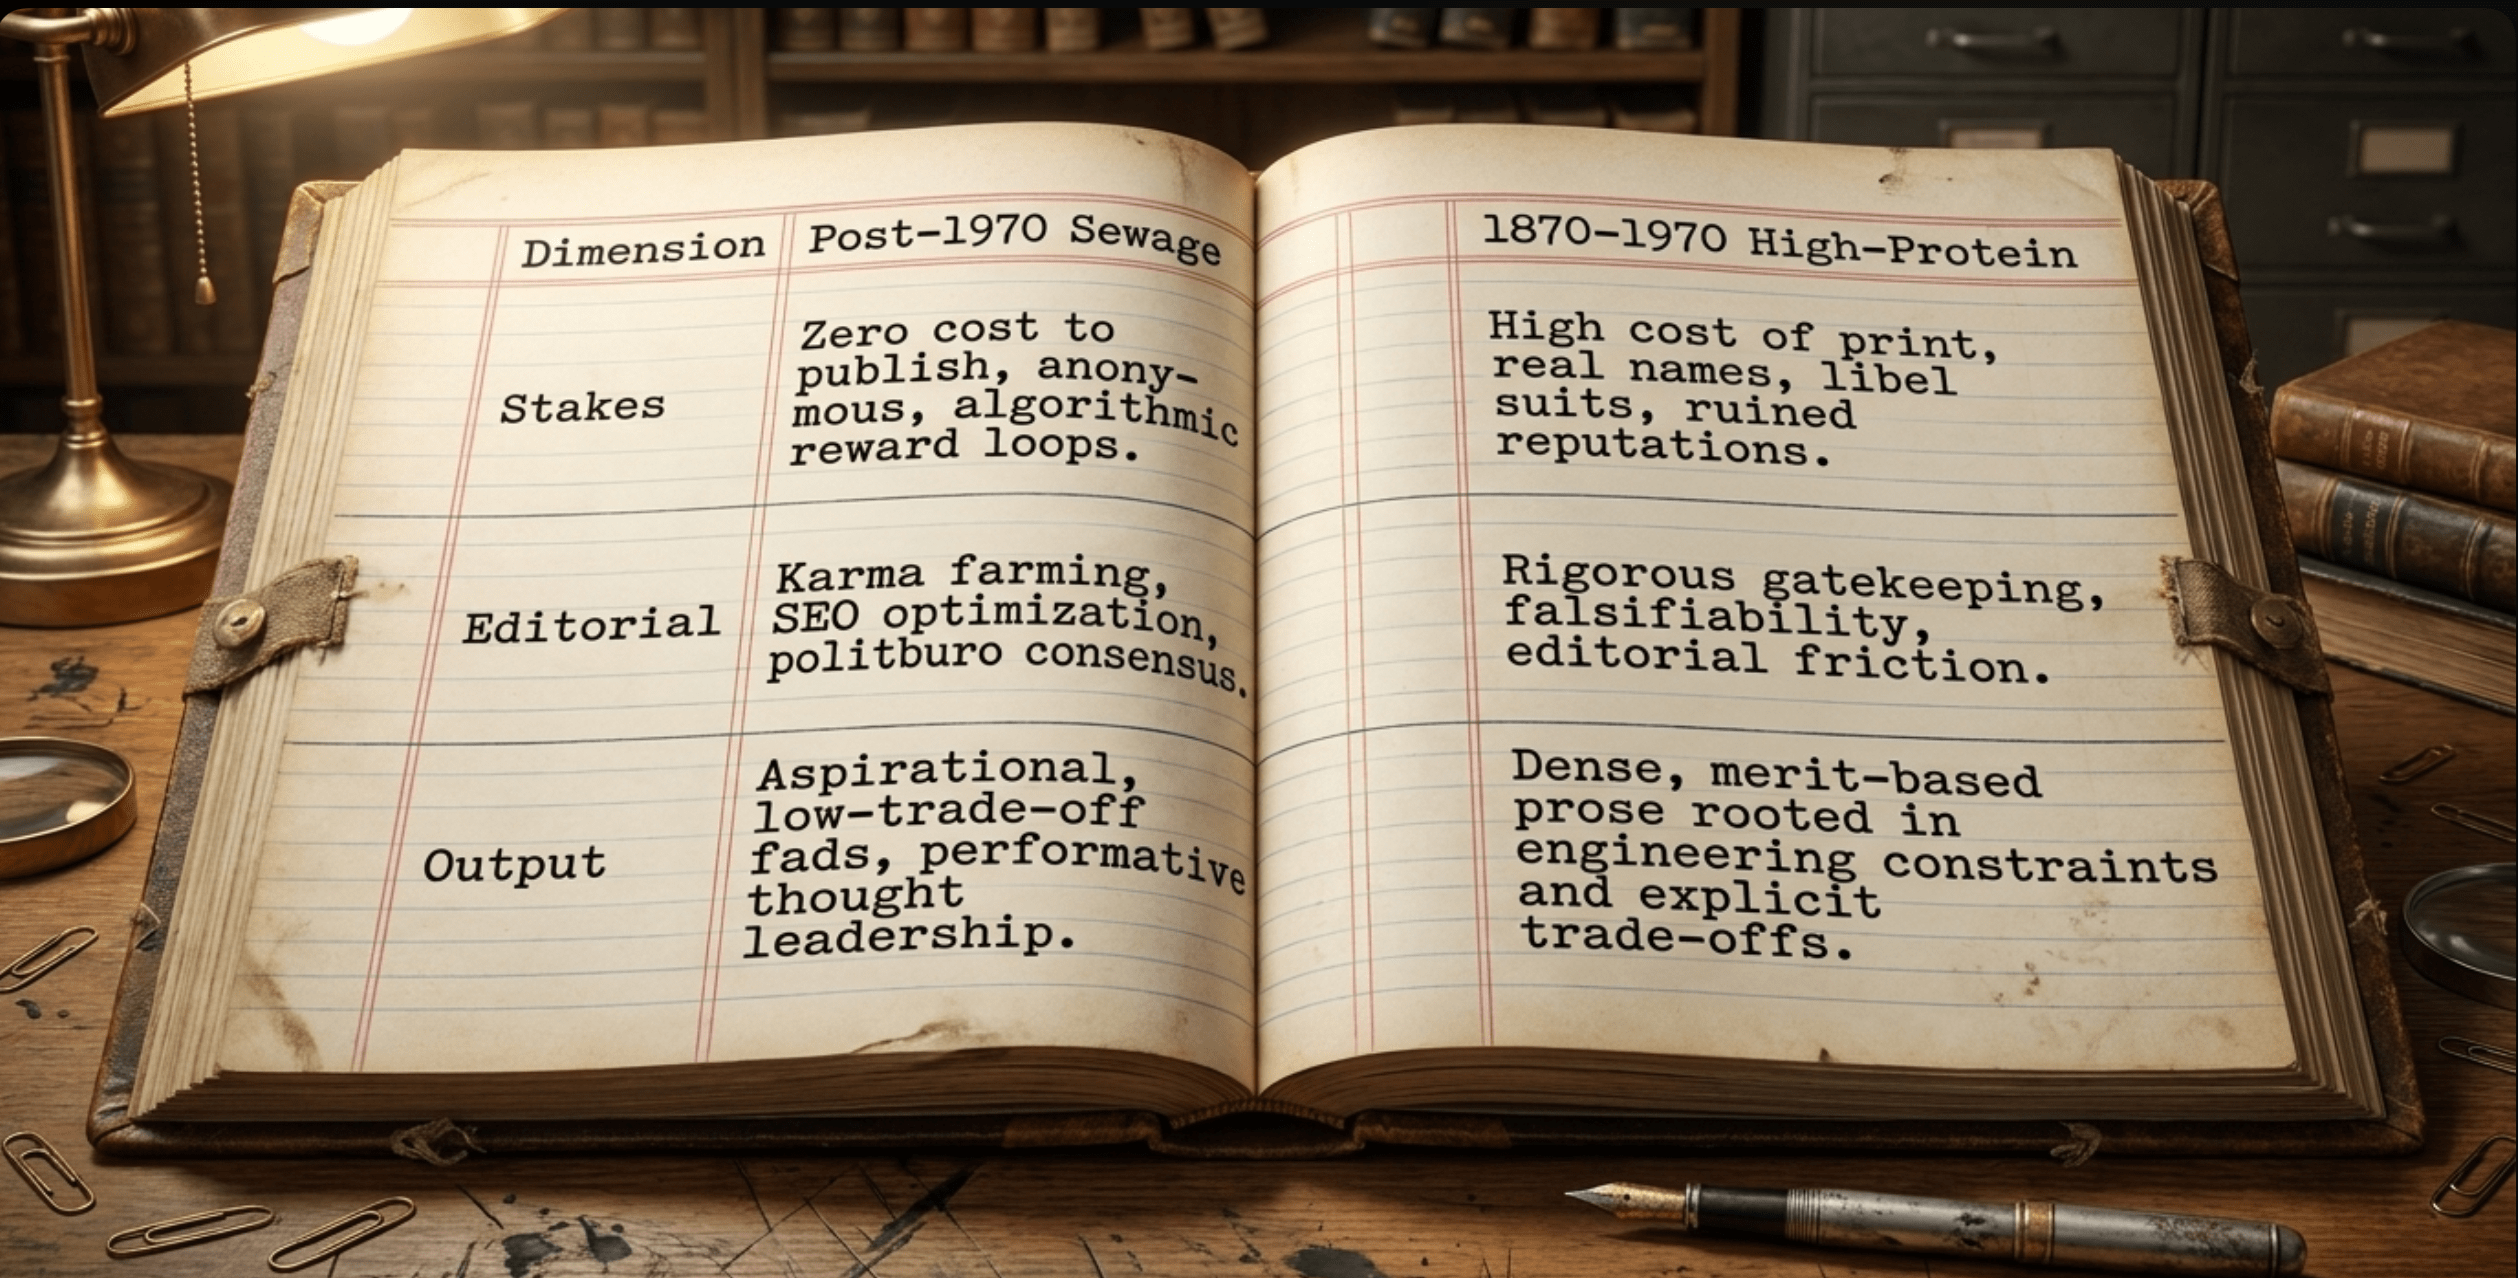 Dimension
Post-1970 Sewage
1870-1970 High-Protein
Stakes
Zero cost to
publish, anony-
mous, algorithmic
reward loops.
High cost of print,
real names, libel
suits, ruined
reputations.
Editorial
Karma farming,
SEO optimization,
politburo consensus.
Rigorous gatekeeping,
falsifiability,
editorial friction.
Output
Aspirational,
low-trade-off
fads, performative
thought
leadership.
Dense, merit-based
prose rooted in
engineering constraints
and explicit
trade-offs.